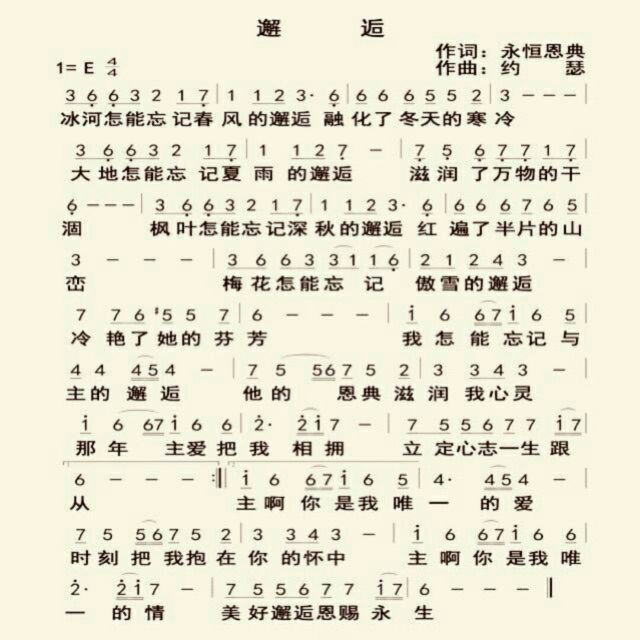 邂 逅
作词：永恒恩典
1= E 4/4 作曲：约 瑟
3 6 6 3 2 1 7 | 1 1 2 3· 6 | 6 6 6 5 5 2 | 3 — — —
冰河怎能忘记春风的邂逅 融化了冬天的寒冷
3 6 6 3 2 1 7 | 1 1 2 7 — | 7 5 6 7 7 1 7
大地怎能忘 记夏 雨 的邂逅 滋润 了万物的干
6 — — — | 3 6 6 3 2 1 7 | 1 1 2 3· 6 | 6 6 6 7 6 5
涸 枫叶怎能忘记深 秋的邂逅 红 遍了半片的山
3 — — — | 3 6 6 3 3 1 1 6 | 2 1 2 4 3 —
峦 梅花怎能忘 记 傲雪的邂逅
7 7 6 #5 5 7 | 6 — — — | i 6 6 7 i 6 5
冷 艳了她的 芬 芳 我 怎 能忘记与
4 4 4 5 4 — | 7 5 5 6 7 5 2 | 3 3 4 3 —
主的 邂 逅 他的 恩典滋润 我心灵
i 6 6 7 i 6 6 | 2· 2 i 7 — | 7 5 5 6 7 7 i 7
那 年 主爱 把 我 相 拥 立 定心志一生 跟
6 — — — :|| i 6 6 7 i 6 5 | 4· 4 5 4 —
从 主啊 你 是我 唯 一 的 爱
7 5 5 6 7 5 2 | 3 3 4 3 — | i 6 6 7 i 6 6
时刻 把 我抱 在 你 的怀中 主 啊 你 是我 唯
2· 2 i 7 — | 7 5 5 6 7 7 i 7 | 6 — — ||
一 的 情 美 好邂逅恩赐 永 生